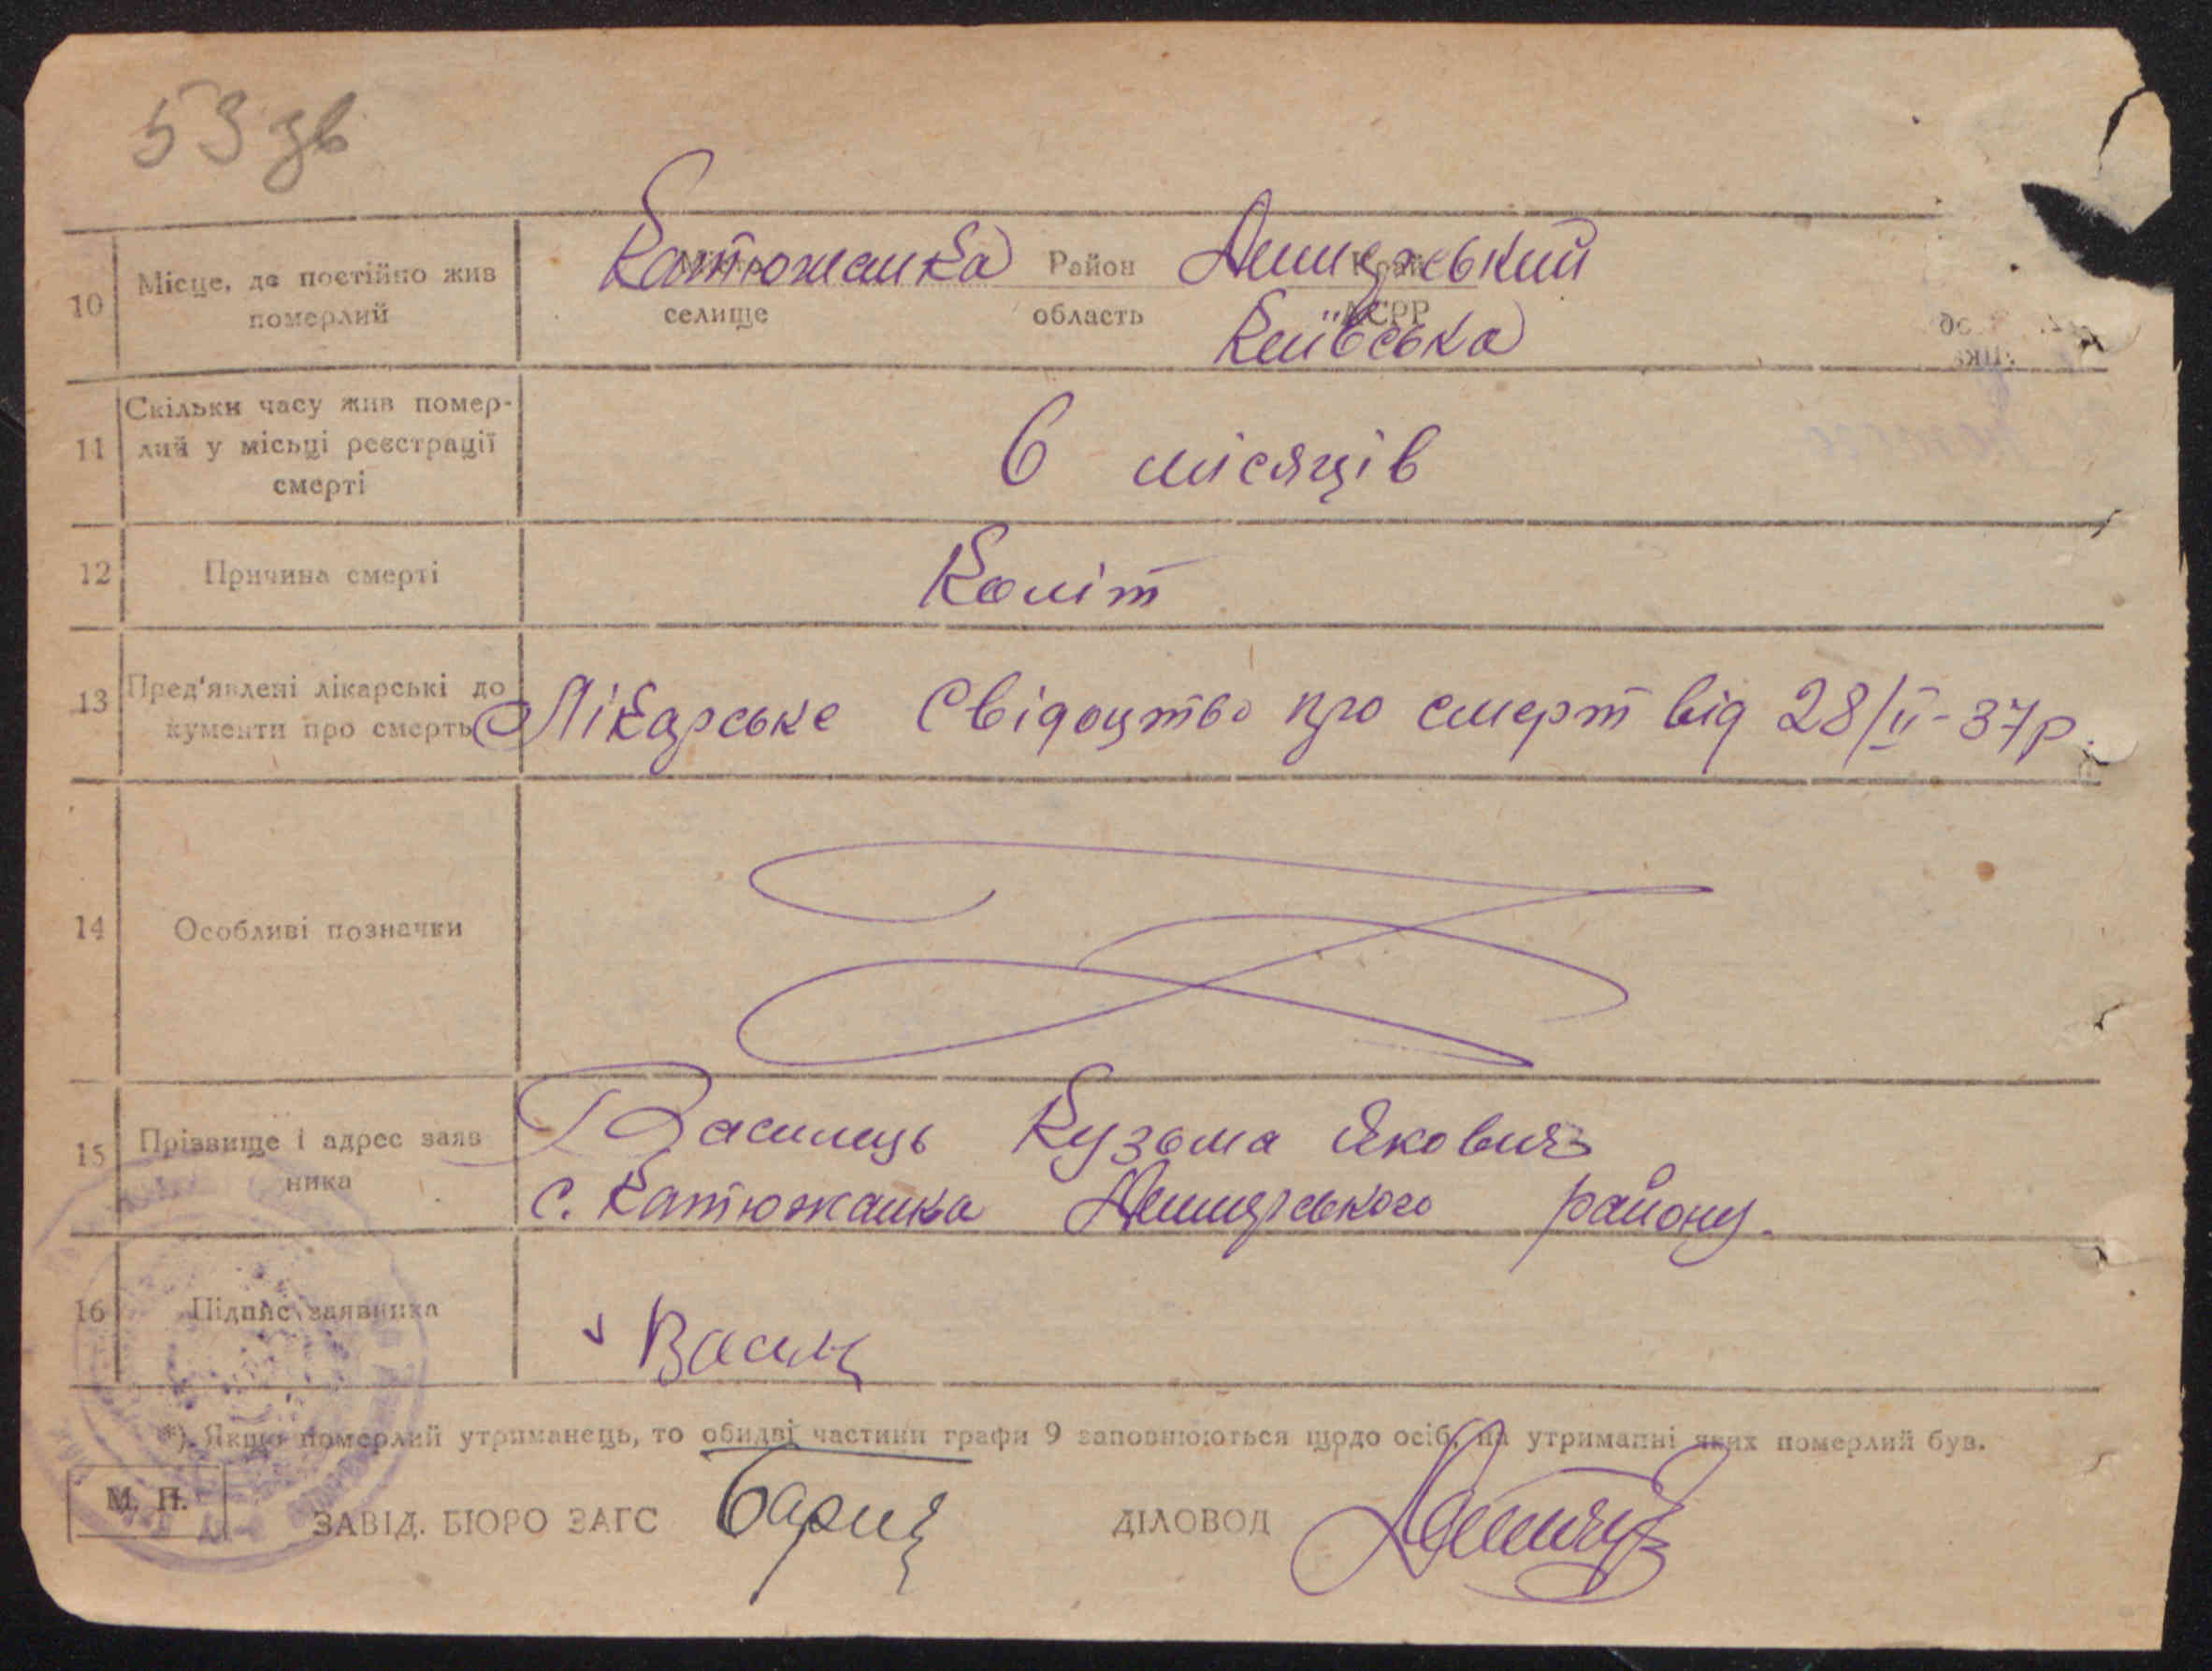 53 зв
10 Місце, де постійно жив померлий
Катюжанка Район Димерський
селище область АСРР
Київська
11 Скільки часу жив помер-
лий у місьці реєстрації
смерті
6 місяців
12 Причина смерті Коліт
13 Пред'явлені лікарські до
кументи про смерть Лікарське Свідоцтво про смерт від 28/II-37р.
14 Особливі позначки
15 Прізвище і адрес заяв
ника
Василець Кузьма Якович
с. Катюжанка Димерського району.
16 Підпис заявника Васил
*) Якщо померлий утриманець, то обидві частини графи 9 заповнюються щодо осіб, на утриманні яких померлий був.
М. П. ЗАВІД. БЮРО ЗАГС ДІЛОВОД